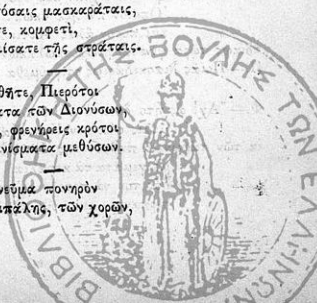 τόσαις μασκαράταις,
τε, κομφετὶ,
μίσατε τῆς στράταις.
θῆτε, Πιερότοι
ατα τῶν Διονύσων,
, φρενήρεις κρότοι
νίσματα μεθύσων.
νεῦμα πονηρὸν
ιπάλης, τῶν χορῶν,
ΒΙΒΛΙΟΘΗ ΤΗΣ ΒΟΥΛΗΣ ΤΩΝ ΕΛΛΗΝΩΝ